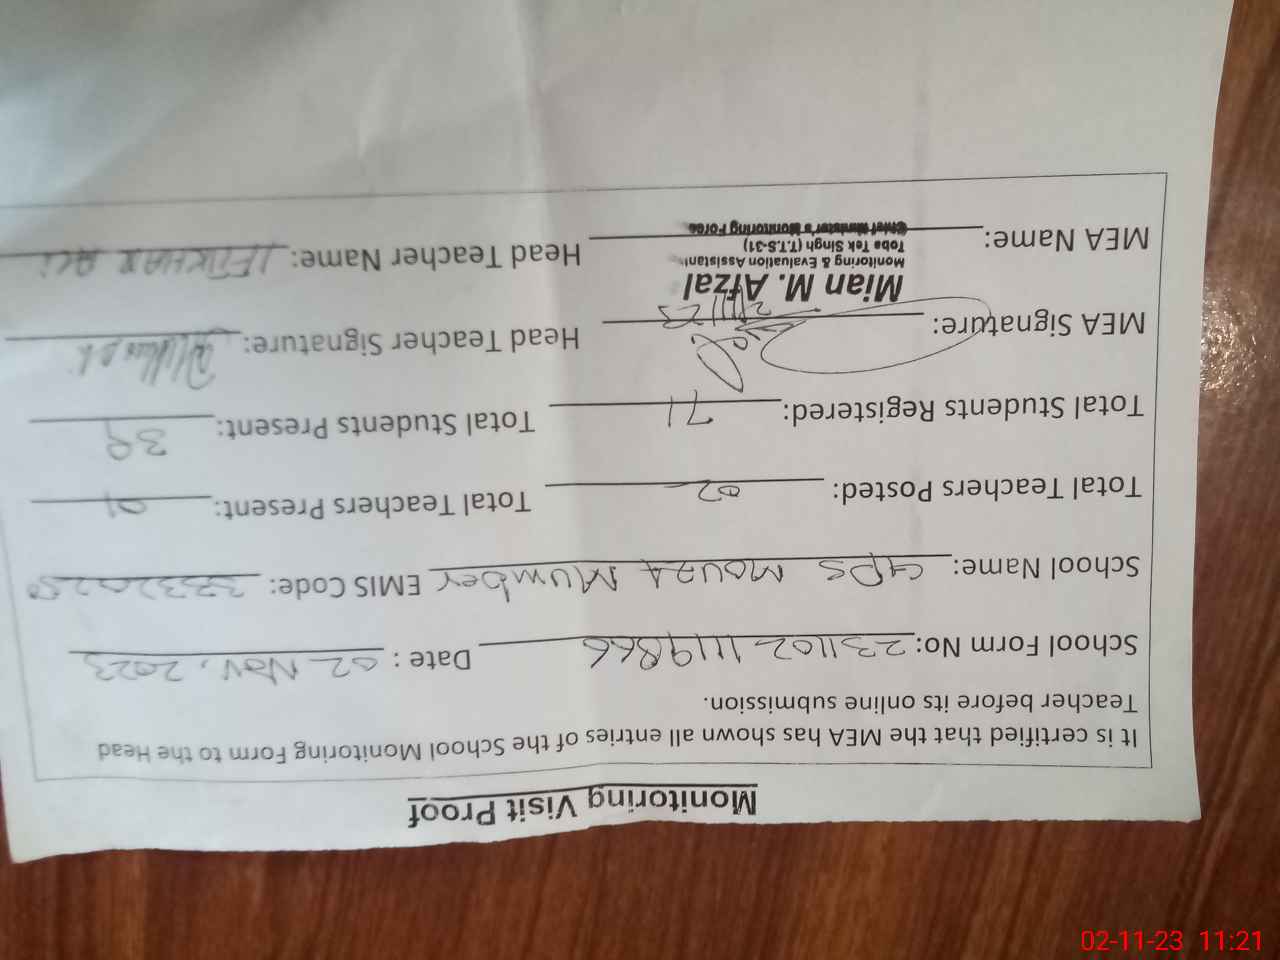 Monitoring Visit Proof
It is certified that the MEA has shown all entries of the School Monitoring Form to the Head
Teacher before its online submission.
School Form No: 231102 1119866 Date : 02 Nov, 2023
School Name: GPS MOUZA Mumber EMIS Code:
Total Teachers Posted: 02 Total Teachers Present: 01
Total Students Registered: 71 Total Students Present: 39
MEA Signature: Head Teacher Signature:
2/11/23
Mian M. Afzal
Monitoring & Evaluation Assistant
Toba Tek Singh (T.T.S-31)
Chief Minister's Monitoring Force
MEA Name: Head Teacher Name: IFTIKHAR ALI
02-11-23 11:21